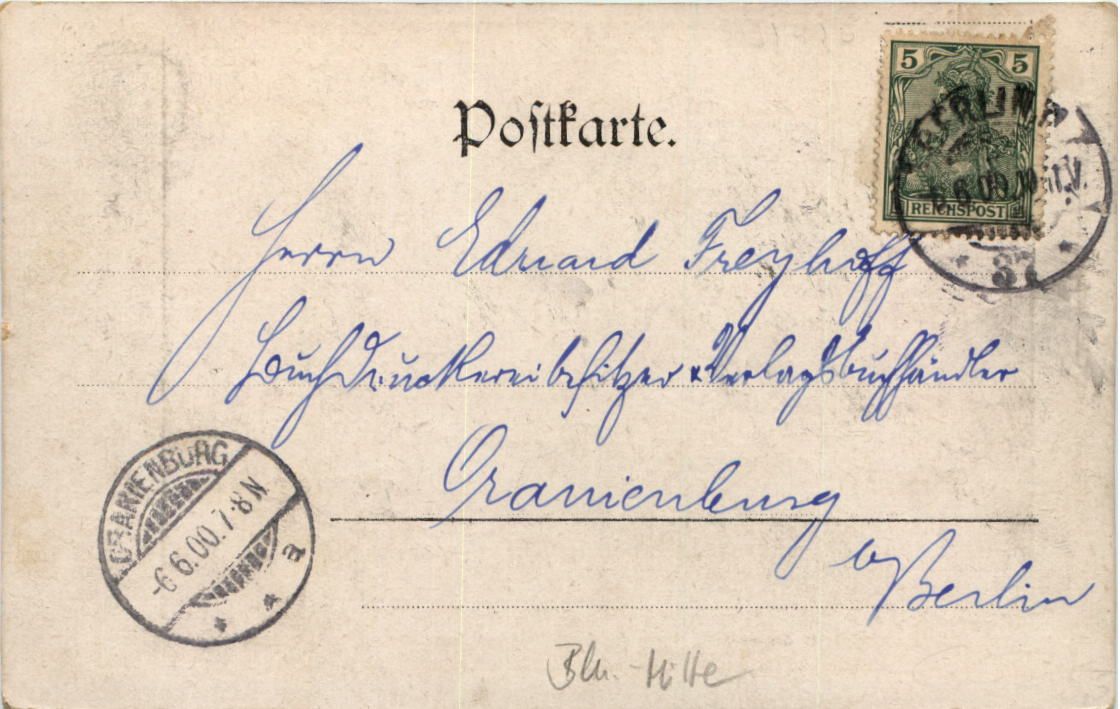 Postkarte.
5 5
REICHSPOST
BERLIN
6.6.00
37
Herrn Eduard Freyhoff
Buchdruckereibesitzer & Verlagsbuchhändler
Oranienburg
b/Berlin
ORANIENBURG
-6 6.00.7-8N
a
Bln.-Mitte